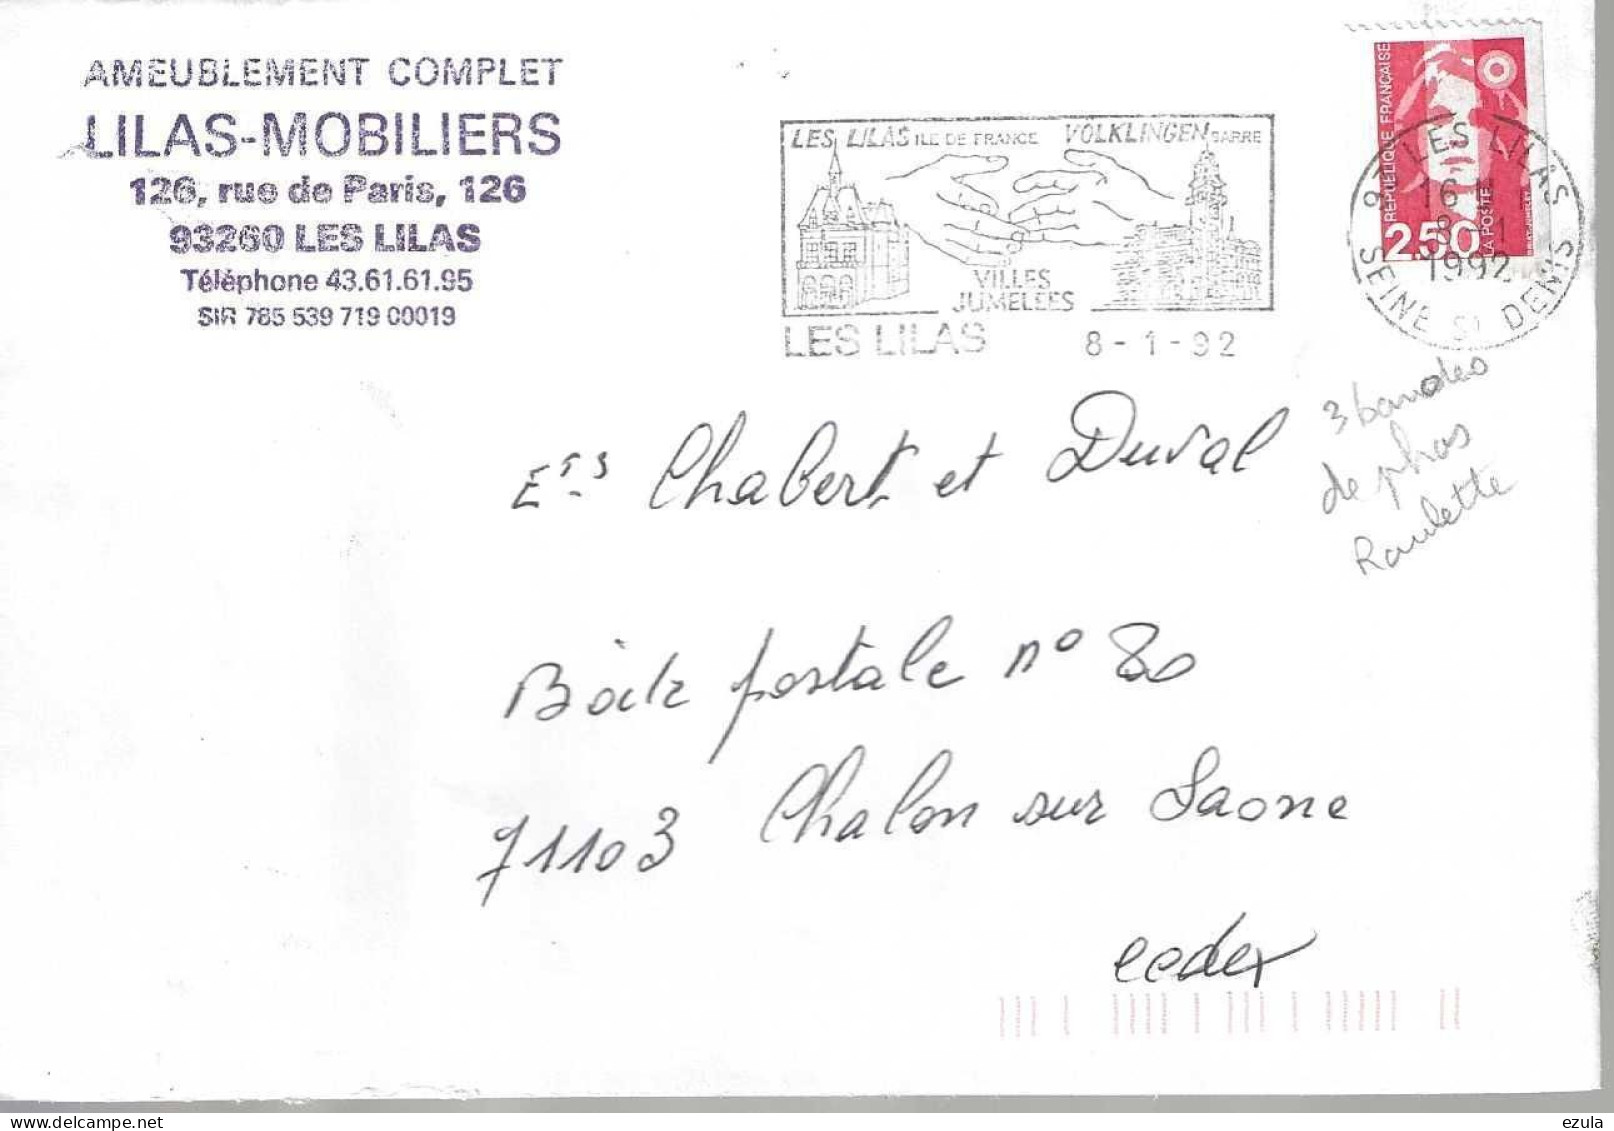 AMEUBLEMENT COMPLET
LILAS-MOBILIERS
126, rue de Paris, 126
93260 LES LILAS
Téléphone 43.61.61.95
SIR 785 539 719 00019
LES LILAS ILE DE FRANCE VOLKLINGEN SARRE
VILLES
JUMELEES
LES LILAS 8-1-92
RÉPUBLIQUE FRANÇAISE
2,50 LA POSTE
LES LILAS
16
8-1
1992
SEINE ST DENIS
3 bandes
de phos
Roulette
Ets Chabert et Duval
Boîte postale n° 80
71103 Chalon sur Saone
cedex
delcampe.net
ezula